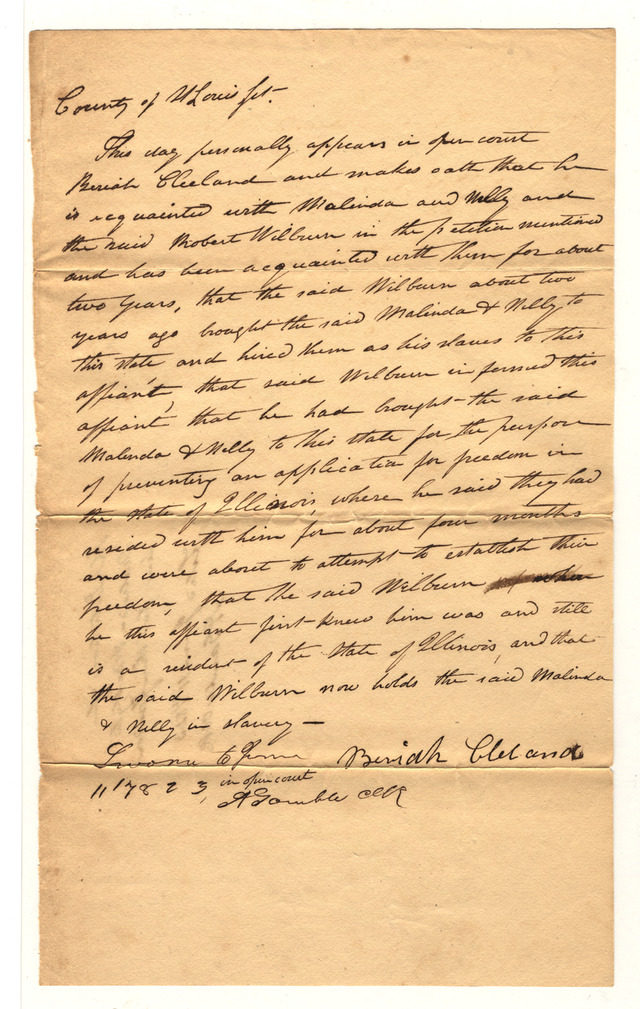 County of St Louis Sct.
This day personally appears in open court
Beriah Cleeland and makes oath that he
is acquainted with Malinda and Nelly and
the said Robert Wilburn in the petition mentioned
and has been acquainted with them for about
two years, that the said Wilburn about two
years ago brought the said Malinda & Nelly to
this state and hired them as his slaves to this
affiant, that said Wilburn informed this
affiant that he had brought the said
Malinda & Nelly to this state for the purpose
of preventing an application for freedom in
the state of Illinois, where he said they had
resided with him for about four months
and were about to attempt to establish their
freedom, that the said Wilburn when
he this affiant first knew him was and still
is a resident of the State of Illinois, and that
the said Wilburn now holds the said Malinda
& Nelly in slavery —
Sworn to Beriah Cleland
in open court
A Gamble Clk